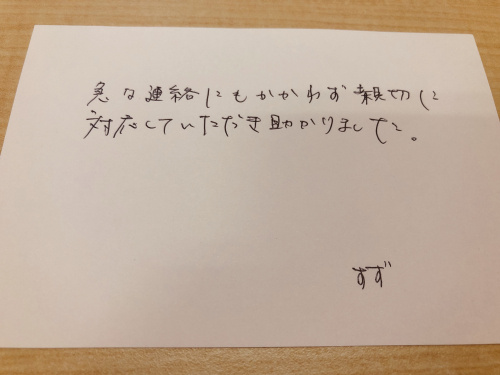 急な連絡にもかかわず親切に
対応していただき助かりました。
すず